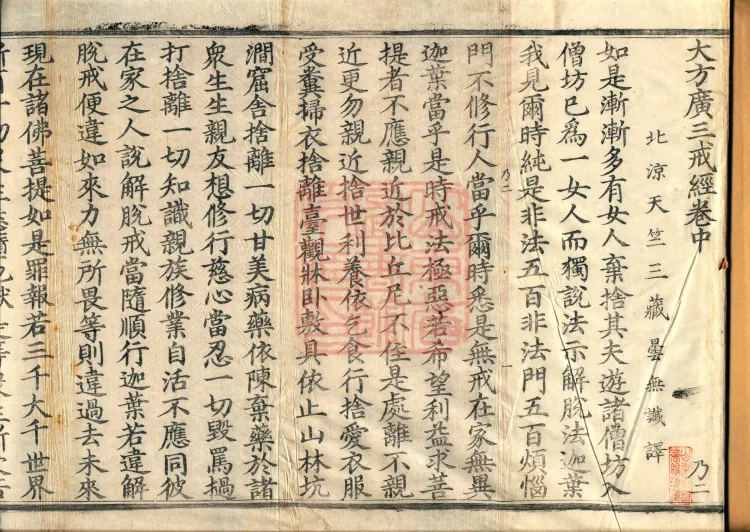 大方廣三戒經卷中
乃二
北涼天竺三藏曇無讖譯
如是漸漸多有女人棄捨其夫遊諸僧坊入
僧坊已為一女人而獨說法示解脫法迦葉
我見爾時純是非法五百非法門五百煩惱
門不修行人當乎爾時悉是無戒在家無異
乃二
一
迦葉當乎是時戒法極惡若希望利益求菩
提者不應親近於比丘尼不住是處離不親
近更勿親近捨世利養依乞食行捨愛衣服
受糞掃衣捨離臺觀牀臥敷具依止山林坑
澗窟舍捨離一切甘美病藥依陳棄藥於諸
眾生生親友想修行慈心當忍一切毀罵撾
打捨離一切知識親族修業自活不應同彼
在家之人說解脫戒當隨順行迦葉若違解
脫戒便違如來力無所畏等則違過去未來
現在諸佛菩提如是罪報若三千大千世界